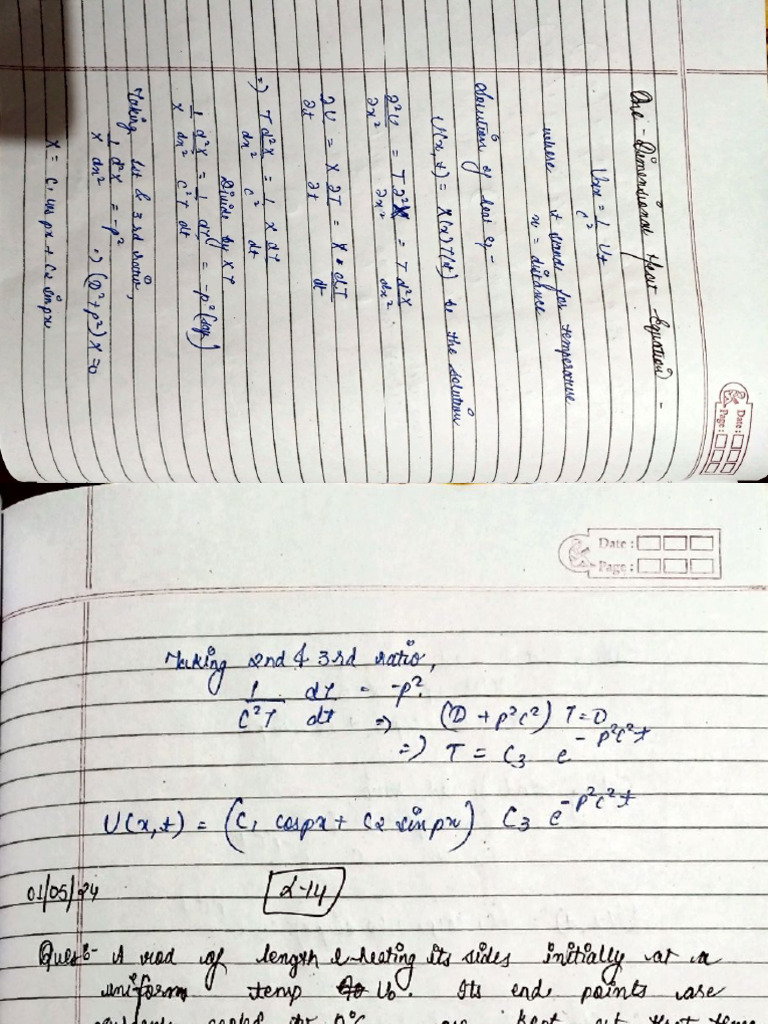 Date :
Page :
One-Dimensional Heat Equation -
Uxx = 1/c² Ut
where t stands for temperature
x = distance
Solution of heat eq -
U(x,t) = X(x)T(t) be the solution
∂²U/∂x² = T ∂²X/∂x² = T d²X/dx².
∂U/∂t = X ∂T/∂t = X • dT/dt
=) T d²X/dx² = 1/c² X dT/dt
Divide by XT
1/X d²X/dx² = 1/c²T dT/dt = -p² (say)
Taking 1st & 3rd ratio,
1/X d²X/dx² = -p² =) (D²+p²) X=0
X = C₁ cos px + C₂ sin px
Date :
Page :
Taking 2nd & 3rd ratio,
1/C²T dT/dt = -p². =) (D + p²c²) T=0
=) T = C₃ e^-p²c²t
U(x,t) = (C₁ cospx + C₂ sinpx) C₃ e^-p²c²t
01/05/24
L-14
Ques:- A rod of length l heating its sides initially at a
uniform temp U₀. Its end points are
cooled to 0°C kept at that